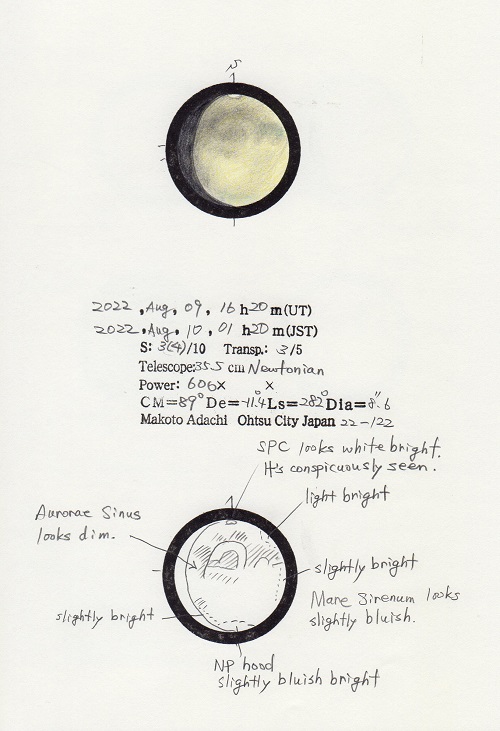 S
2022, Aug, 09, 16 h 20 m (UT)
2022, Aug, 10, 01 h 20 m (JST)
S: 3(4)/10 Transp.: 3/5
Telescope: 35.5 cm Newtonian
Power: 606× ×
CM=89° De=-11.4 Ls=282° Dia=8.6"
Makoto Adachi Ohtsu City Japan 22-122
SPC looks white bright.
It's conspicuously seen.
light bright
Aurorae Sinus
looks dim.
slightly bright
Mare Sirenum looks
slightly bluish.
slightly bright
NP hood
slightly bluish bright